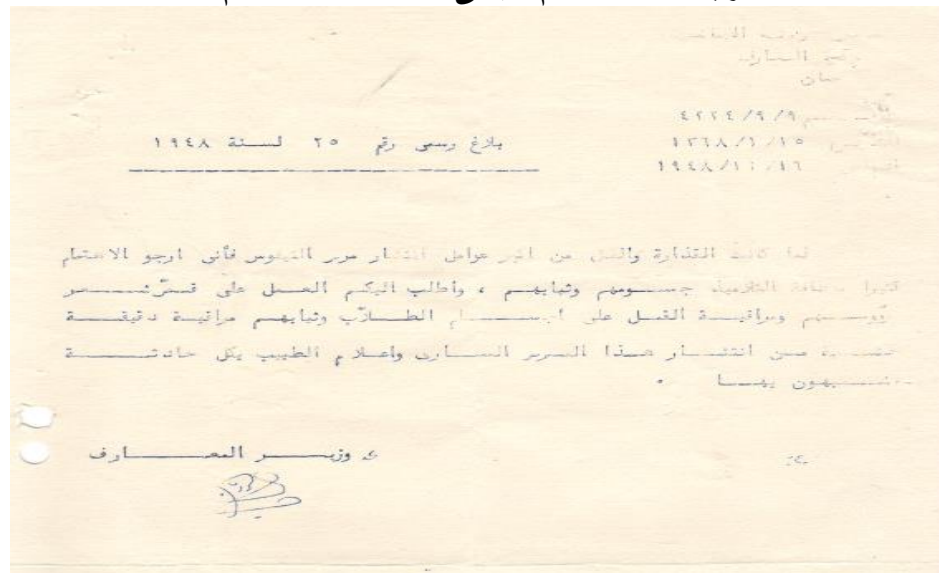 وزارة المعارف
عمان
٤٢٢٤/٩/٩
١٣٦٨/١/١٥
١٩٤٨/١١/١٦
بلاغ رسمى رقم ٢٥ لسنة ١٩٤٨
لما كانت القذارة والقمل من اكبر عوامل انتشار مرض التيفوس فأنى ارجو الاهتمام
كثيرا بنظافة التلاميذ جسومهم وثيابهم ، وأطلب اليكم العمل على قص شعر
رؤوسهم ومراقبة القمل على اجسام الطلاب وثيابهم مراقبة دقيقة
خشية من انتشار هذا المرض السارى واعلام الطبيب بكل حادثة
تشتبهون بها .
ع وزير المعارف